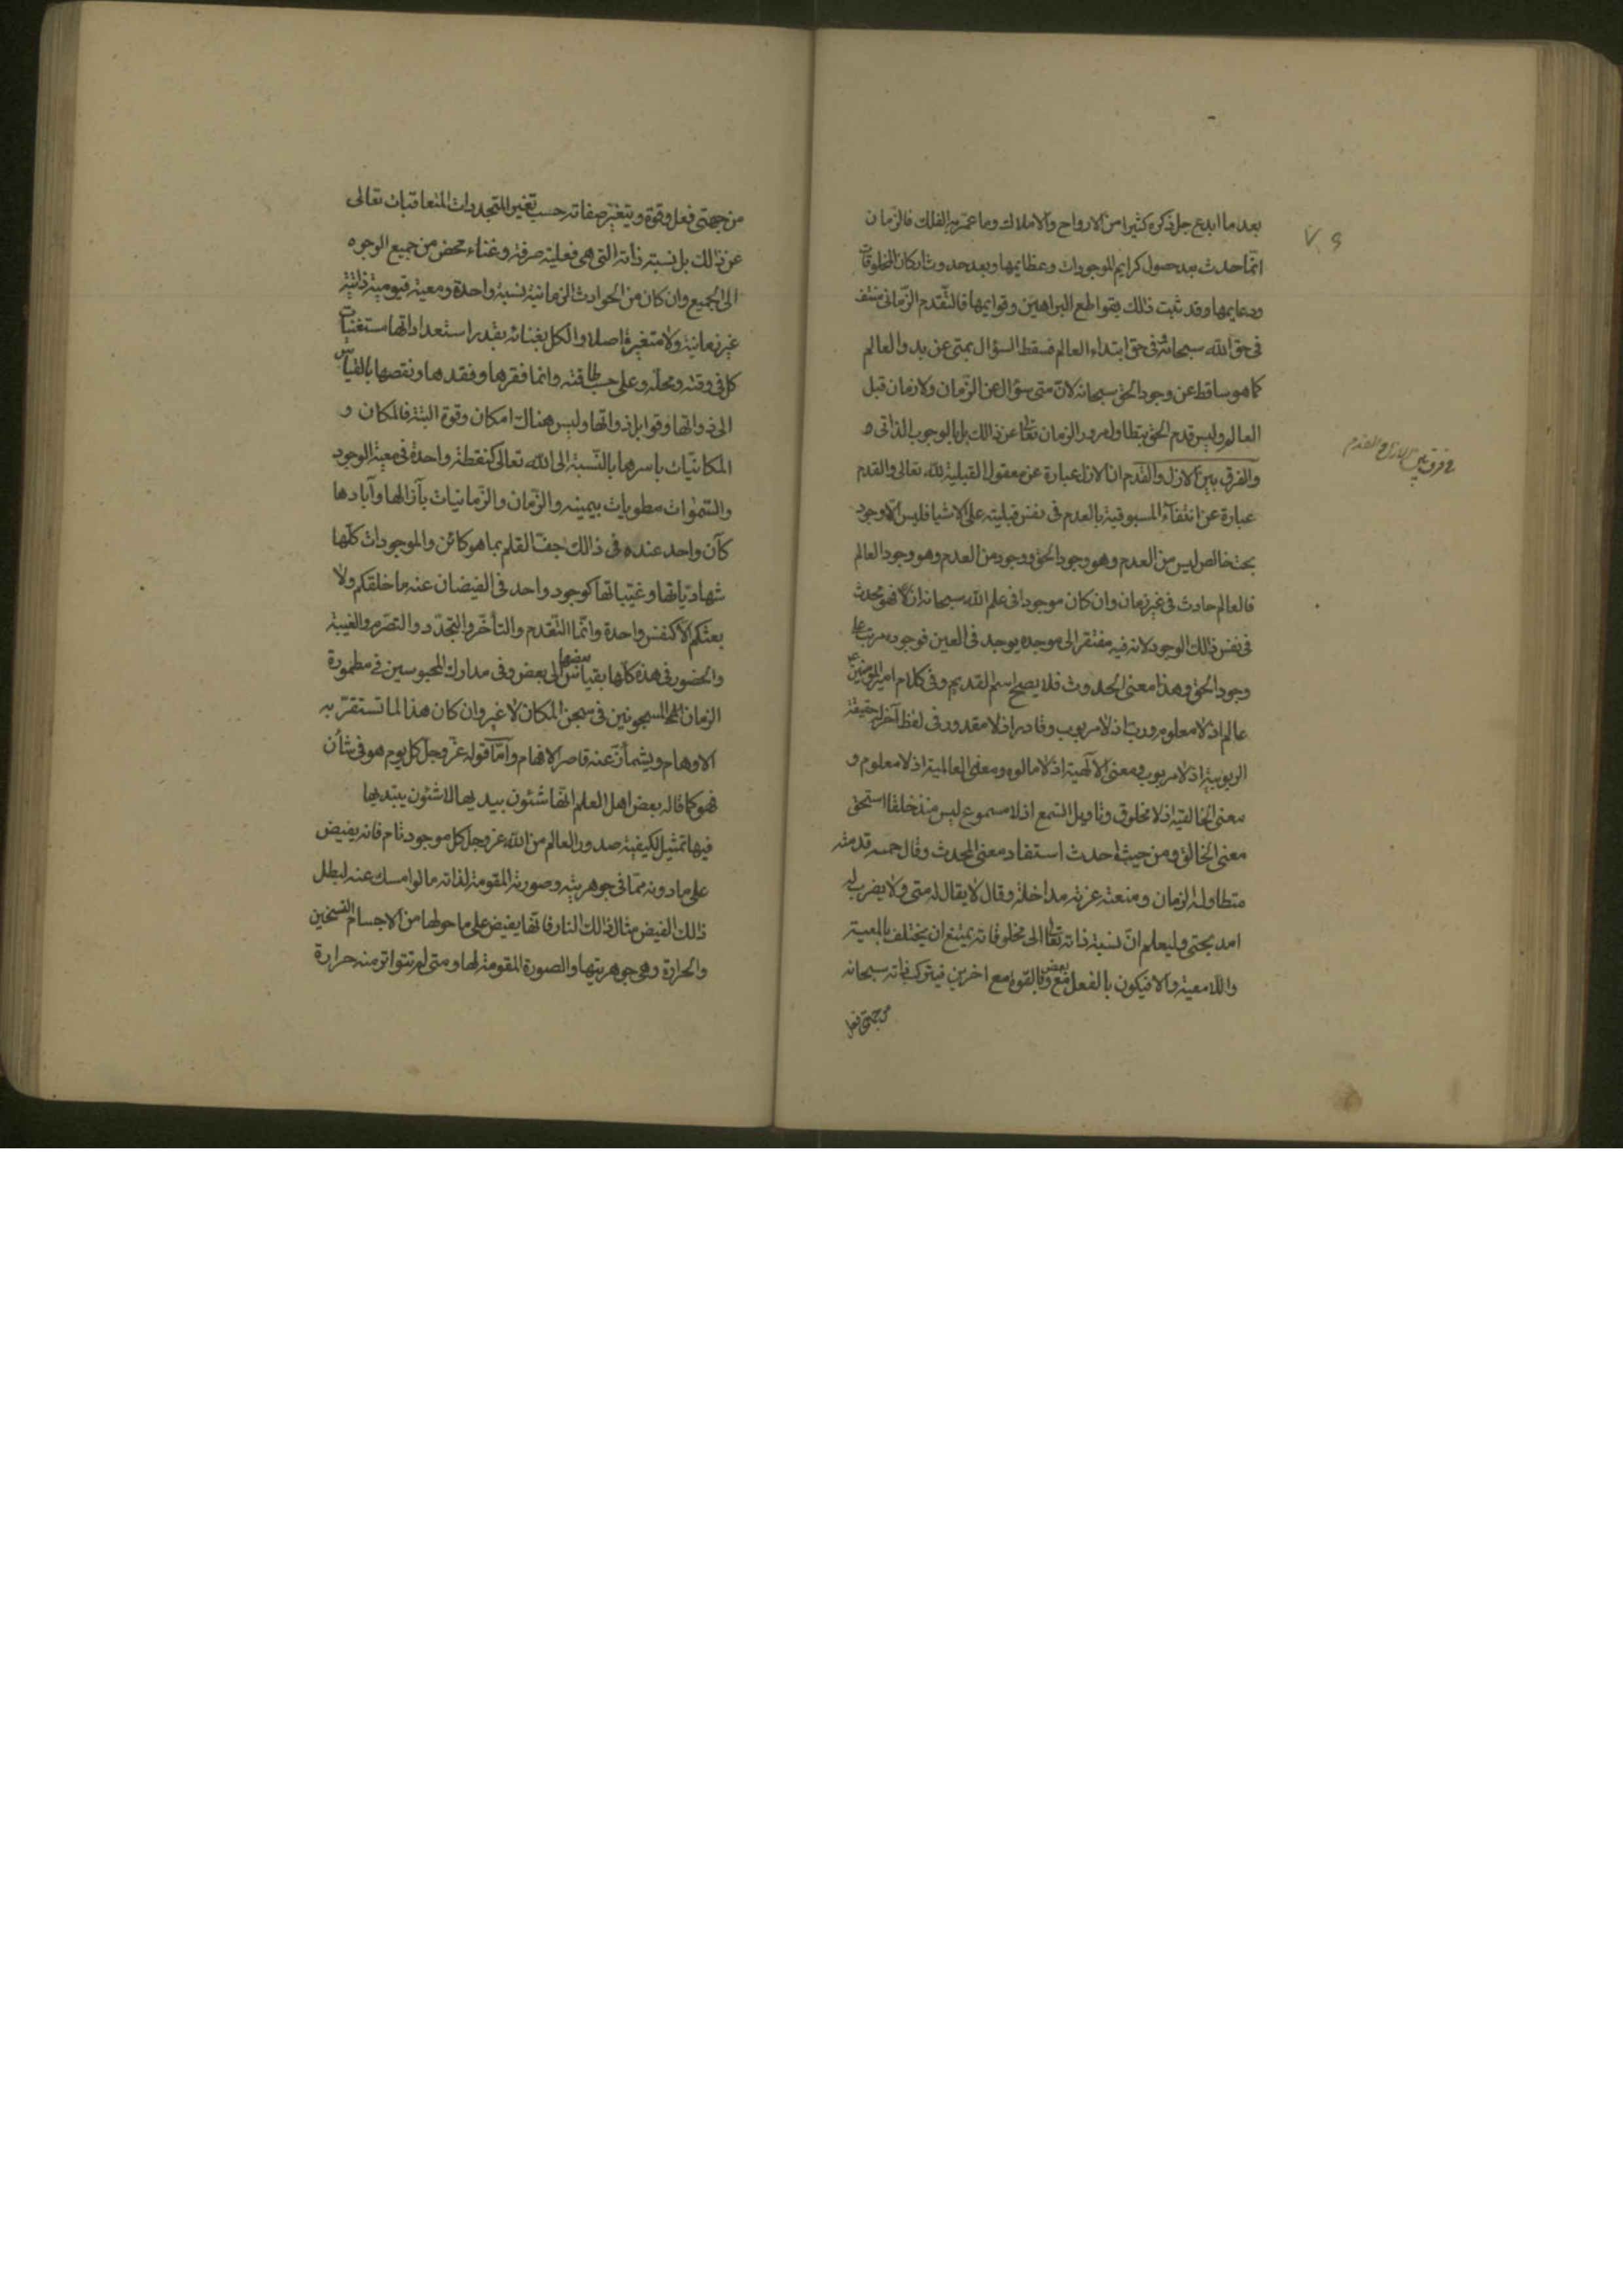 بعد ما ابدع جل ذكره كثيرا من الارواح والاملاك وما عمر به الفلك فالزمان
انما حدث بعد حصول كرايم الموجودات وعظايمها وبعد حدوث اركان المخلوقات
ودعايمها وقد ثبت ذلك بقواطع البراهين وقوايمها فالتقدم الزماني منتف
في حق الله سبحانه في حق ابتداء العالم فسقط السؤال بمتى عن بدو العالم
كما هو ساقط عن وجود الحق سبحانه لان متى سؤال عن الزمان ولا زمان قبل
العالم وليس قدم الحق بتطاول مرور الزمان تعالى عن ذالك بل بالوجوب الذاتي
والفرق بين الازل والقدم ان الازل عبارة عن معقول القبلية لله تعالى والقدم
عبارة عن انتفاء المسبوقية بالعدم في نفس قبليته على الاشيا فليس الا وجود
بحت خالص ليس من العدم وهو وجود الحق ووجود من العدم وهو وجود العالم
فالعالم حادث في غير زمان وان كان موجودا في علم الله سبحانه ازلا فهو محدث
في نفس ذالك الوجود لانه فيه مفتقر الى موجده يوجد في العين فوجوده مرتب على
وجود الحق وهذا معنى الحدوث فلا يصح اسم القديم وفي كلام امير المؤمنين ع
عالم اذ لا معلوم ورب اذ لا مربوب وقادر اذ لا مقدور وفي لفظ آخر له حقيقة
الربوبية اذ لا مربوب ومعنى الآلهية اذ لا مالوه ومعنى العالمية اذ لا معلوم و
معنى الخالقية اذ لا مخلوق وتاويل السمع اذ لا مسموع ليس منذ خلق استحق
معنى الخالق ومن حيث احدث استفاد معنى المحدث وقال قدمته
متطاولة الزمان ومنعته عزته مداخلة وقال لا يقال له متى ولا يضرب له
امد بحتى وليعلم ان نسبة ذاته تعالى الى مخلوقاته يمتنع ان يختلف بالمعية
واللامعية والا فيكون بالفعل مع بعض وبالقوة مع اخرين فيتركب ذاته سبحانه
من جهتي فعل
في فرق بين الازل والقدم
من جهتي فعل وقوة ويتغير صفاته حسب تغير المتجددات المتعاقبات تعالى
عن ذالك بل نسبة ذاته التي هي فعلية صرفة وغناء محض من جميع الوجوه
الى الجميع وان كان من الحوادث الزمانية نسبة واحدة ومعية قيومية ذاتية
غير زمانية ولا متغيرة اصلا والكل بغنائه بقدر استعداداتها مستغنيات
كل في وقته ومحله وعلى حسب طاقته وانما فقرها وفقدها ونقصها بالقياس
الى ذواتها وقوابل ذواتها وليس هناك امكان وقوة البتة فالمكان و
المكانيات باسرها بالنسبة الى الله تعالى كنقطة واحدة في معية الوجود
والسموات مطويات بيمينه والزمان والزمانيات بآزالها وآبادها
كآن واحد عنده في ذالك جف القلم بما هو كائن والموجودات كلها
شهادياتها وغيبياتها كوجود واحد في الفيضان عنه ما خلقكم ولا
بعثكم الا كنفس واحدة وانما التقدم والتأخر والتجدد والتصرم والغيبة
والحضور في هذه كلها بقياس بعضها الى بعض وفي مدارك المحبوسين في مطمورة
الزمان المسجونين في سجن المكان لا غير وان كان هذا لما تستقر به
الاوهام ويشمأز عنه قاصر الافهام وآما قوله عز وجل كل يوم هو في شأن
فهو كما قاله بعض اهل العلم انها شئون يبديها لا شئون يبتديها
فيها تمثيل لكيفية صدور العالم من الله عز وجل كل موجود تام فانه يفيض
على ما دونه مما في جوهريته وصورته المقومة لذاته ما لو امسك عنه لبطل
ذلك الفيض مثال ذالك النار فانها يفيض على ما حولها من الاجسام التسخين
والحرارة وهي جوهريتها والصورة المقومة لها ومتى لم تتواتر منه حرارة